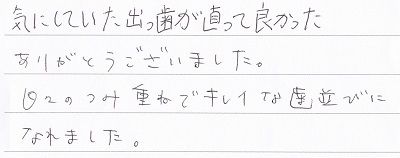 気にしていた出っ歯が直って良かった
ありがとうございました。
日々のつみ重ねでキレイな歯並びに
なれました。